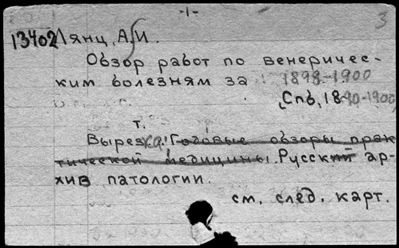 -1-
3
13402 Лянц, А.И.
Обзор работ по венеричес-
ким болезням за 1898-1900
Спб, 1890-1900
т.
Вырезка: Годовые обзоры прак-
тической медицины. Русский ар-
хив патологии.
см. след. карт.